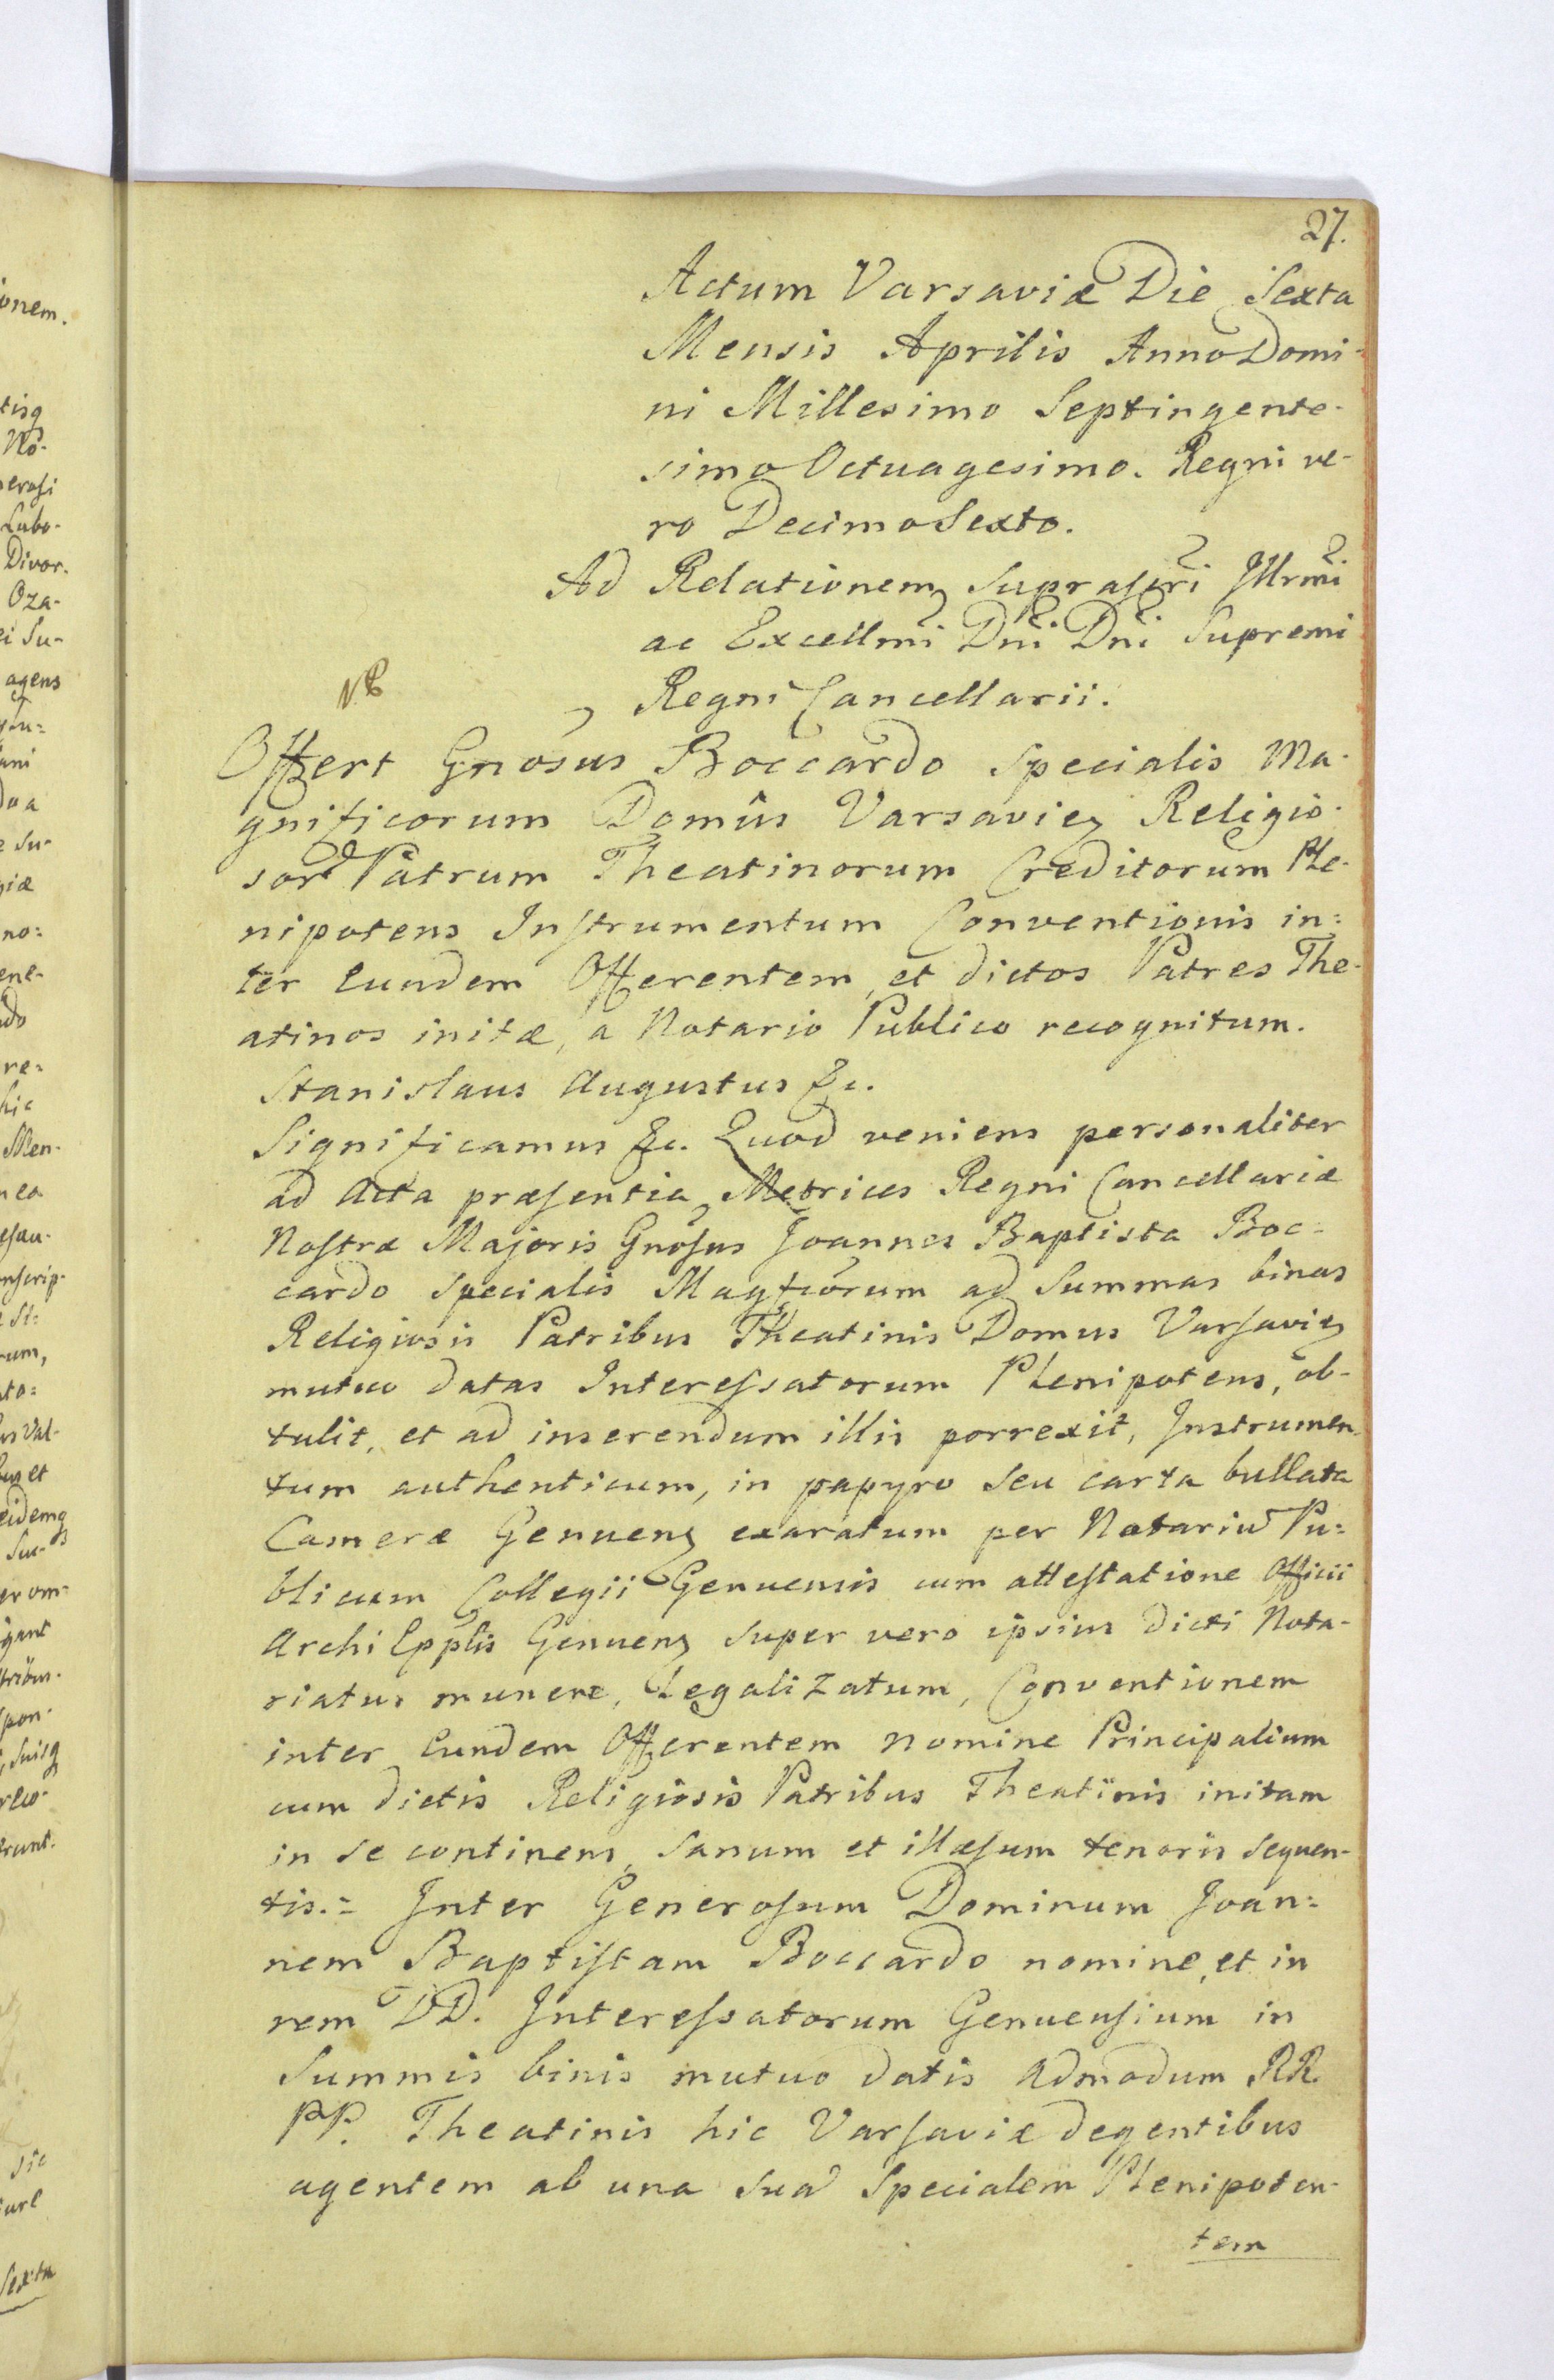 27.
Actum Varsaviæ Die Sexta
Mensis Aprilis Anno Domi-
ni Millesimo Septingente-
simo Octuagesimo. Regni ve-
ro Decimo Sexto.
Ad Relationem Suprascri Illrmi
ac Excellmi Dni Dni Supremi
Regni Cancellarii.
NB
Offert Gnosus Boccardo Specialis Ma-
gnificorum Domûs Varsavieɳ Religio-
sorˀ Patrum Theatinorum Creditorum Ple-
nipotens Instrumentum Conventionis in=
ter Eundem Offerentem, et dictos Patres The-
atinos initæ, a Notario Publico recognitum.
Stanislaus Augustus &c.
Significamus &c. Quod veniens personaliter
ad Acta præsentia Metrices Regni Cancellariæ
Nostræ Majoris Gnosus Joannes Baptista Boc=
cardo Specialis Magficorum ad Summas binas
Religiosis Patribus Theatinis Domus Varsavieɳ
mutuo datas Interessatorum Plenipotens, ob-
tulit, et ad inserendum illis porrexit, Instrumen-
tum authenticum, in papyro seu carta bullata
Cameræ Genuenɳ exaratum per Notariũ Pu=
blicum Collegii Genuensis cum attestatione Officii
Archi Epplis Genuenɳ super vero ipsius dicti Nota-
riatus munere, Legalizatum, Conventionem
inter Eundem Offerentem nomine Principalium
cum dictis Religiosis Patribus Theatinis initam
in se continens, Sanum et illæsum tenoris sequen-
tis.= Inter Generosum Dominum Joan=
nem Baptistam Boccardo nomine, et in
rem DD. Interessatorum Genuensium in
Summis binis mutuo datis Admodum RR.
PP. Theatinis hic Varsaviæ degentibus
agentem ab una suã Specialem Plenipoten-
tem